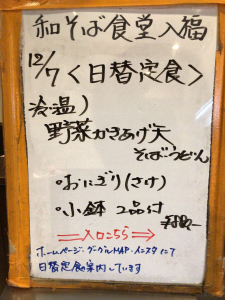 和そば食堂入福
12/7〈日替定食〉
冷温)
野菜かきあげ天
そば・うどん
・おにぎり(さけ)
・小鉢 2品付
⇒入口こちら⇒
ホームページ・グーグルMAP・インスタにて
日替定食案内しています